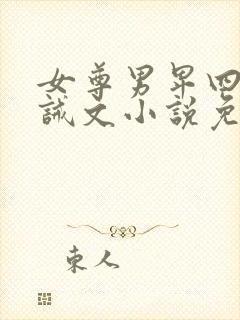 女尊男卑四
誡文小說免
東人